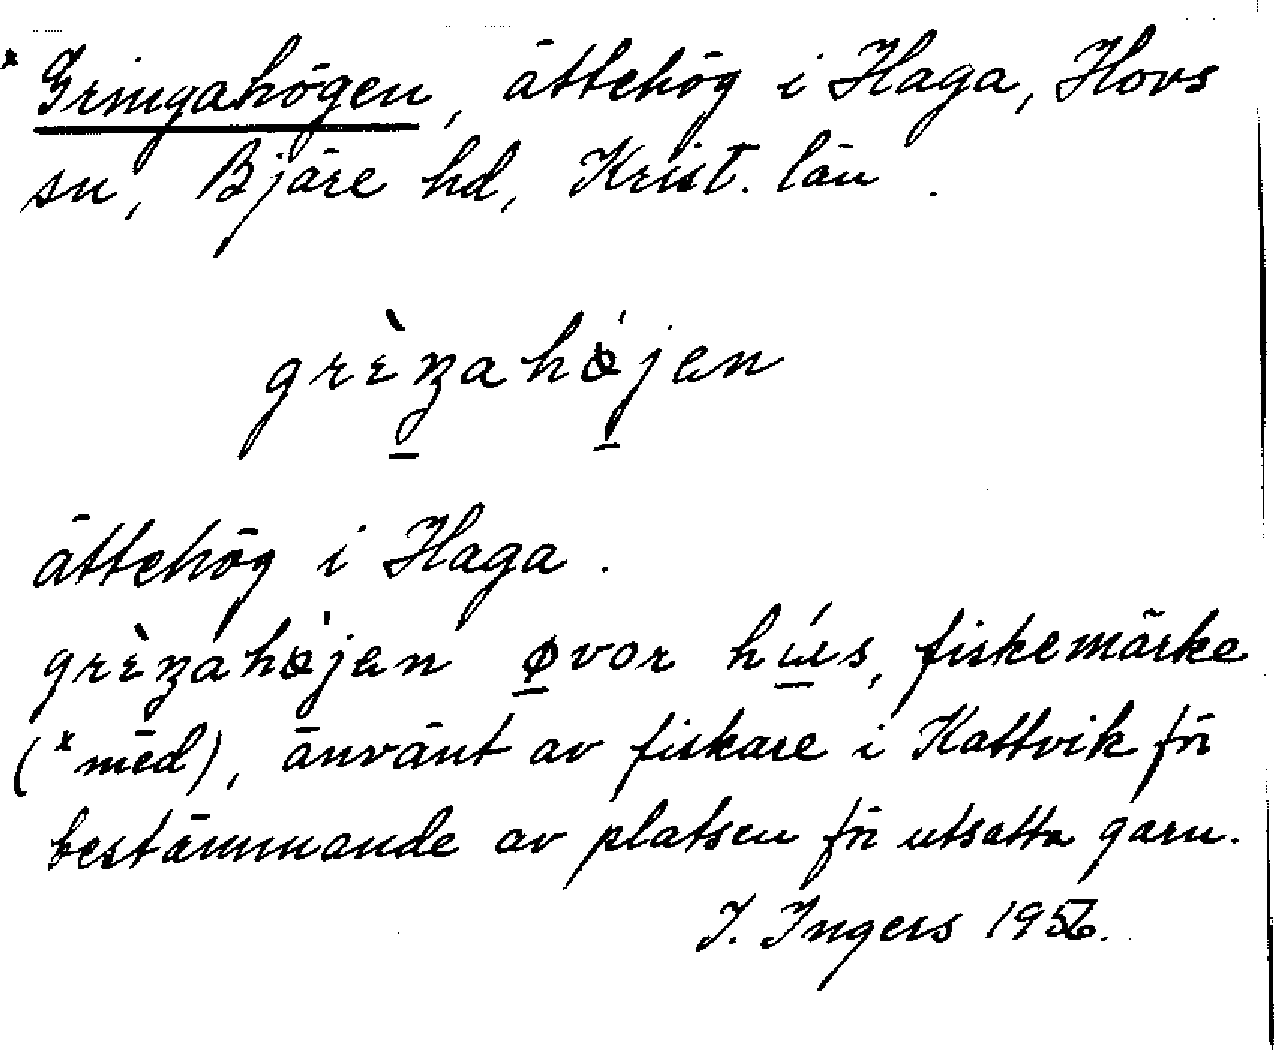 * Gringahögen, ättehög i Haga, Hovs
sn, Bjäre hd, Krist. län.
grèŋahǿjen
ättehög i Haga.
grèŋahǿjen øvor hús, fiskemärke
(*méd), använt av fiskare i Kattvik för
bestämmande av platsen för utsatta garn.
I. Ingers 1956.